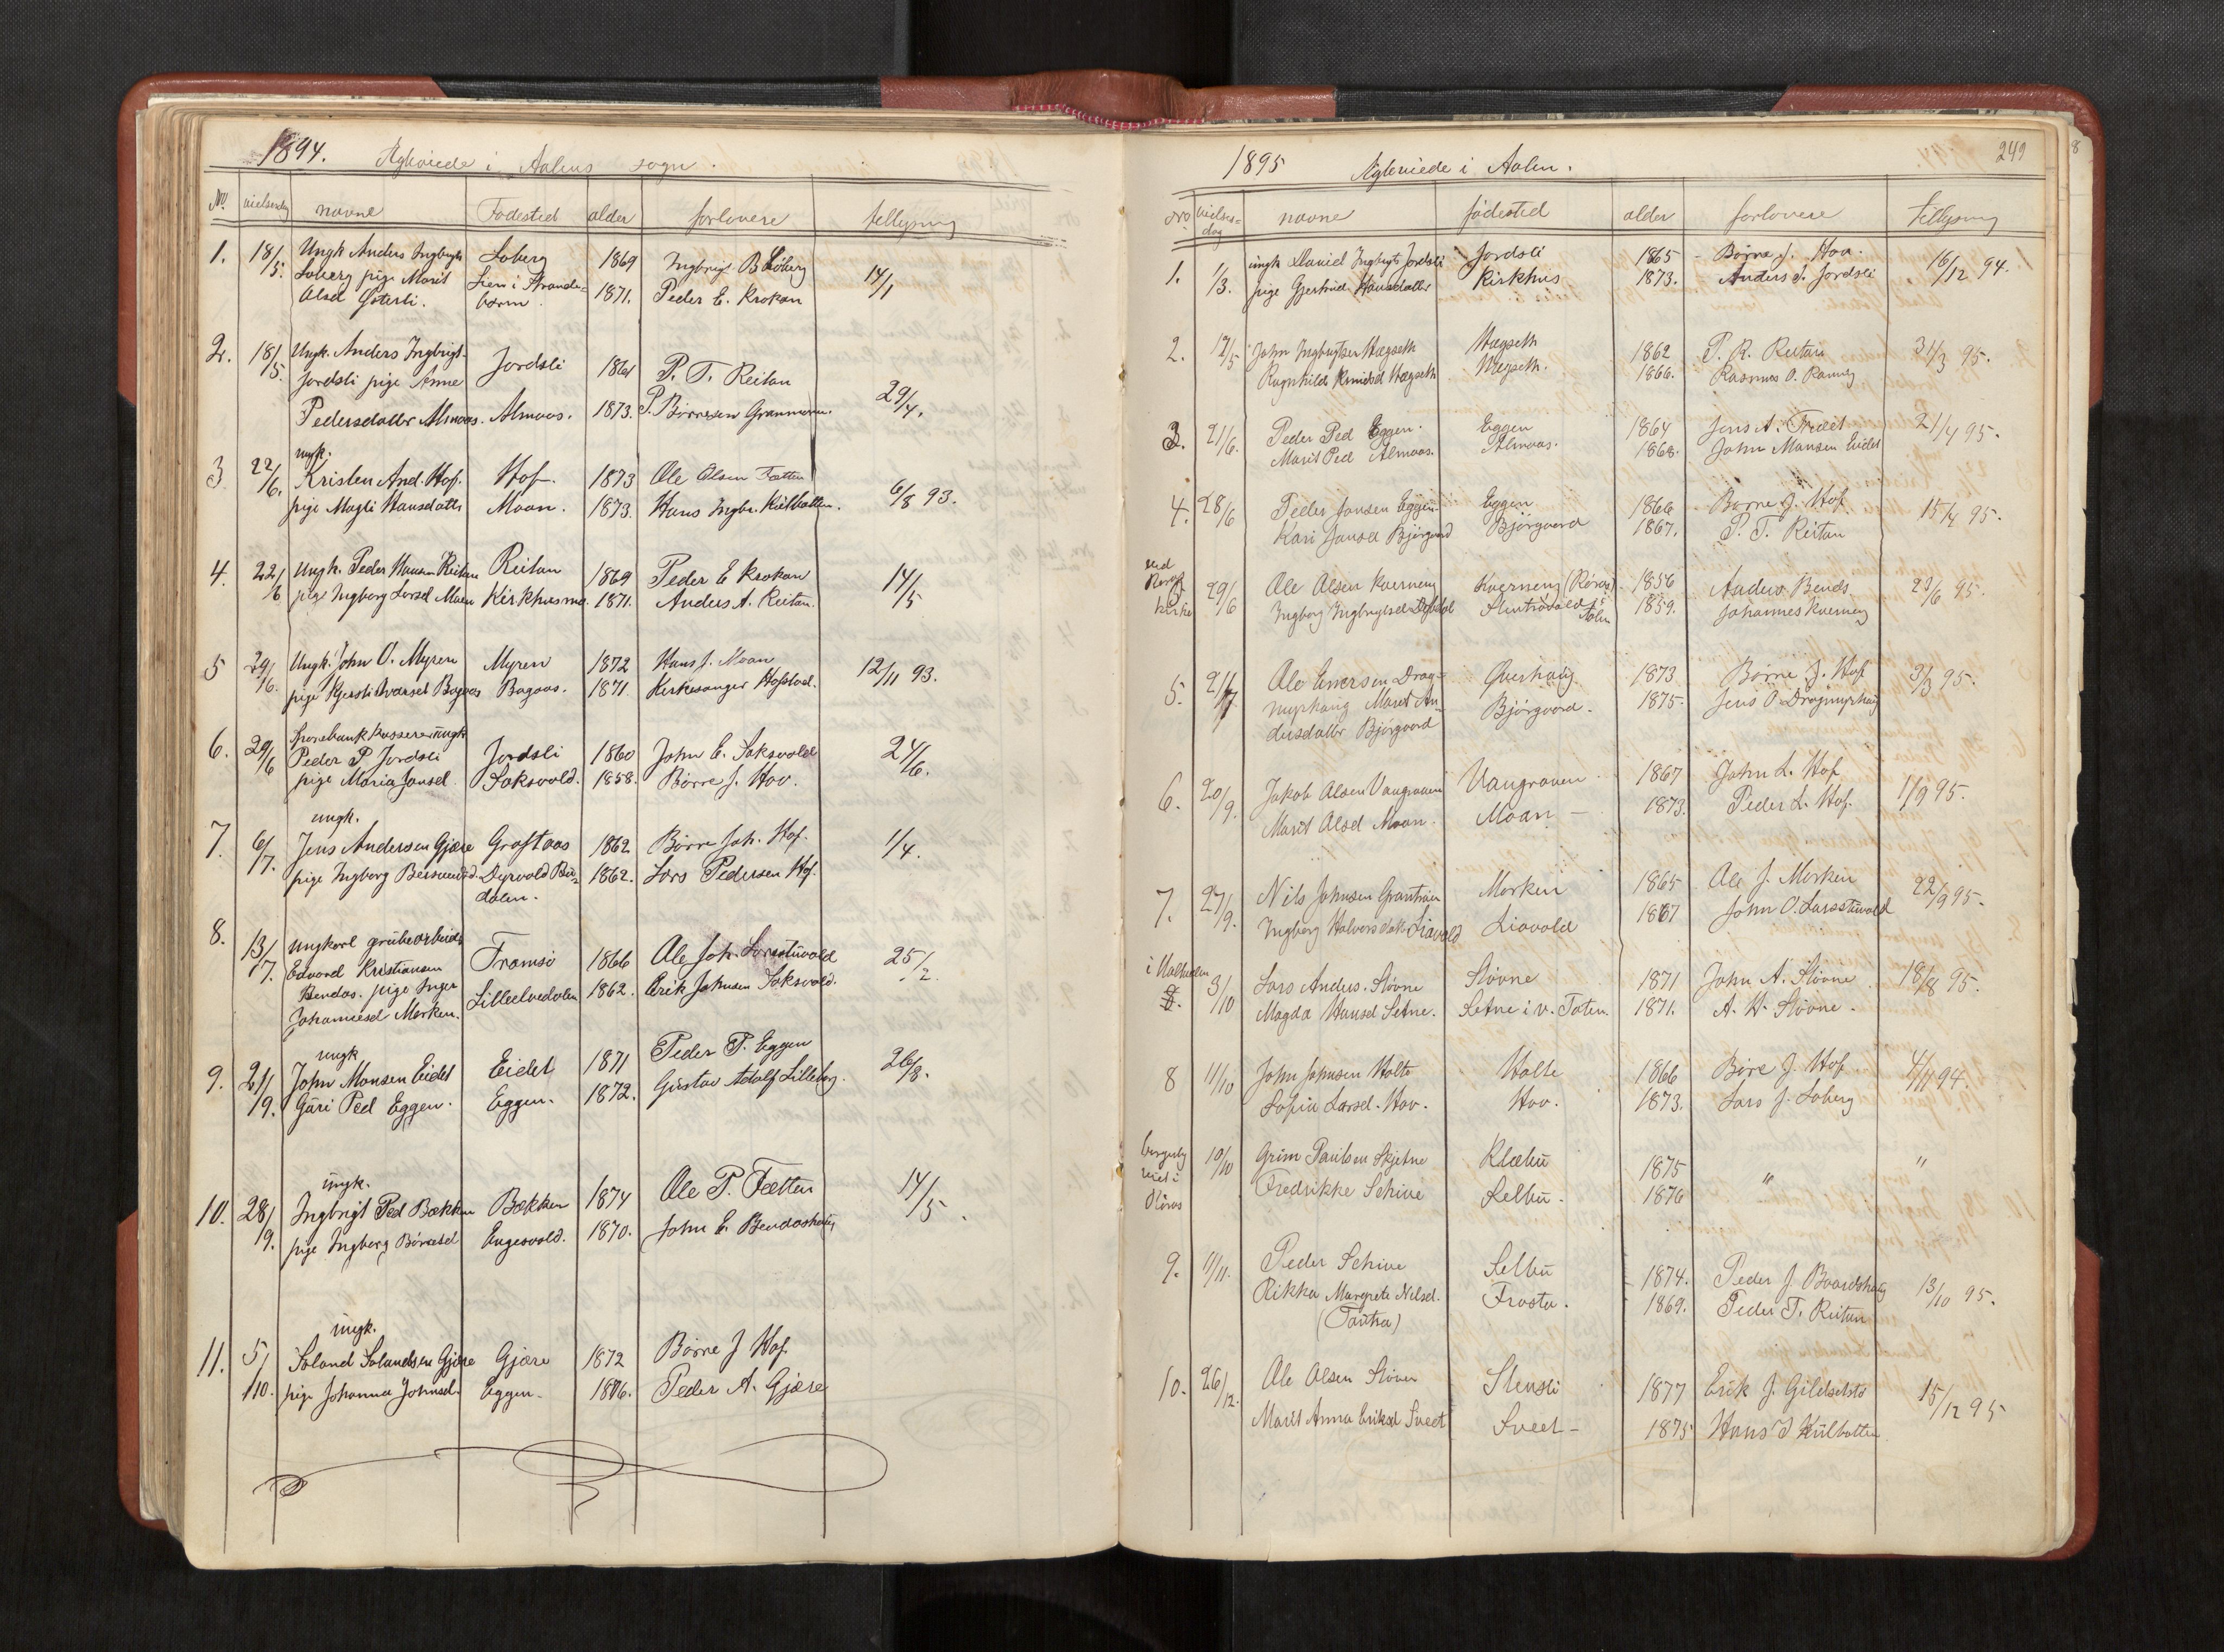 1894. Ægteviede i Aalens sogn.
No. vielsesdag navne Fødested alder forlovere tillysning
1. 18/5. Ungk Anders Ingbrigts Loberg 1869 Ingbrigt B Loberg 14/1
Loberg pige Marit Lien i Strande- 1871. Peder E. Krokan
Olsd Østerli. barm.
2. 18/5. Ungk. Anders Ingbrigt. Jordsli 1861 P. T. Reitan
Jordsli pige Anne
Pedersdatter Almaas. Almaas. 1873. P. Børresen Granmoen. 29/4.
ungk.
3 22/6. Kristen And. Hof. Hof. 1873 Ole Olsen Fætten 6/8 93.
pige Magli Hansdatt Moan. 1873. Hans Ingbr. Kulbotten.
4. 22/6 Ungk. Peder Hansen Reitan Reitan 1869 Peder E Krokan 14/5
pige Ingborg Larsd Moen Kirkhusmo. 1871. Anders A. Reitan.
5 29/6. Ungk. John O. Myren Myren 1872 Hans J. Moan 12/11 93.
pige Kjersti Ivarsd Bagaas Bagaas. 1871. Kirkesanger Hofstad.
Sparebankkasserer ungk
6. 29/6 Peder P Jordsli Jordsli 1860 John E. Saksvold 24/6.
pige Maria Jonsd. Saksvold. 1858. Børre J. Hov.
ungk.
7. 6/7. Jens Andersen Gjære Graftaas 1862 Børre Joh. Hof. 1/4.
pige Ingborg Dyrvold Bu- 1862. Lars Pedersen Hof.
dalen.
8. 13/7. ungkarl grubearbeid.
Edvard Kristiansen Tromsø 1866 Ole Joh. Larsstuvold 25/2.
Bendos. pige Inger Lilleelvedalen 1862. Erik Johnsen Saksvold.
Johannesd Morken.
ungk
9. 21/9. John Monsen Eidet Eidet 1871 Peder P. Eggen 26/8.
Guri Ped Eggen. Eggen. 1872. Gustav Adolf Lilleberg.
ungk.
10. 28/9. Ingbrigt Ped Bækken Bækken 1874 Ole P. Fætten 14/5.
pige Ingborg Børresd Engesvold. 1870. John E. Bendoshaug
ungk.
11. 5/10. Saland Salandsen Gjære Gjære 1872 Børre J Hof.
pige Johanna Johnsd. Eggen. 1876. Peder A. Gjære
1895 Ægteviede i Aalen. 249
No. vielses-dag navne fødested alder forlovere tillysning
1. 1/3. ungk Daniel Ingbrigts Jordsli Jordsli 1865 Børre J. Hov. 16/12 94.
pige Gjertrud Hansdatter Kirkhus 1873. Anders J. Jordsli
2. 12/5 John Ingbrigtsen Hægseth Hægseth 1862 P. R. Reitan 31/3 95.
Ragnhild Knudsd Hægseth Hægseth. 1866. Rasmus O. Ramlo
3. 21/6. Peder Ped Eggen. Eggen 1864 Jens A. 21/4 95.
Marit Ped Almaas. Almaas. 1868. John Monsen Eidet
4. 28/6 Peder Jonsen Eggen Eggen 1866 Børre J. Hof 15/4 95.
Kari Jonsd Bjørgaard Bjørgaard 1867. P. T. Reitan
ved Røros kirke 29/6 Ole Olsen Kverneng Kverneng (Røros) 1856 Anders Bendos. 23/6 95.
Ingborg Ingbrigtsd i Aalen 1859. Johannes Kverneng
5. 21/7 Ole Einersen Drag- Overhaug 1873 Børre J. Hof 3/3 95.
myrhaug Marit An- Bjørgaard. 1875. Jens O. Dragmyrhaug
dersdatter Bjørgaard
6. 20/9. Jakob Olsen Vangraven Vangraven 1867 John L. Hof 1/9 95.
Marit Olsd Moan. Moan 1873. Peder L. Hof.
7. 27/9. Nils Johnsen Grantrøen Morken 1865 Ole J. Morken 22/9 95.
Ingborg Halvorsdatt. Liavold Liavold 1867 John O. Larsstuvold
i
8. 3/10 Lars Anders. Støvne Støvne 1871 John A. Støvne 18/8 95.
Magda Hansd Setne. Setne i v. Toten. 1871. A. H. Støvne.
8 11/10 John Johnsen Holte Holte 1866 Børe J. Hof 4/11 94.
Sofia Larsd. Hov. Hov. 1873. Lars J. Loberg
borgerlig viet i Røros 10/10 Grim Paulsen Skjetne Klæbu 1875 " "
Fredrikke Schive Selbu. 1876
9. 11/11. Peder Schive Selbu 1874. Peder J. Baardshaug 13/10 95.
Rikka Margrete Nilsd. Frosta. 1869. Peder T. Reitan
(Tautra)
10. 26/12. Ole Olsen Støven Stensli 1877 Erik J. Gildsetstø 15/12 95
Marit Anna Eriksd Sveet Sveet 1875 Hans I Kulbotten